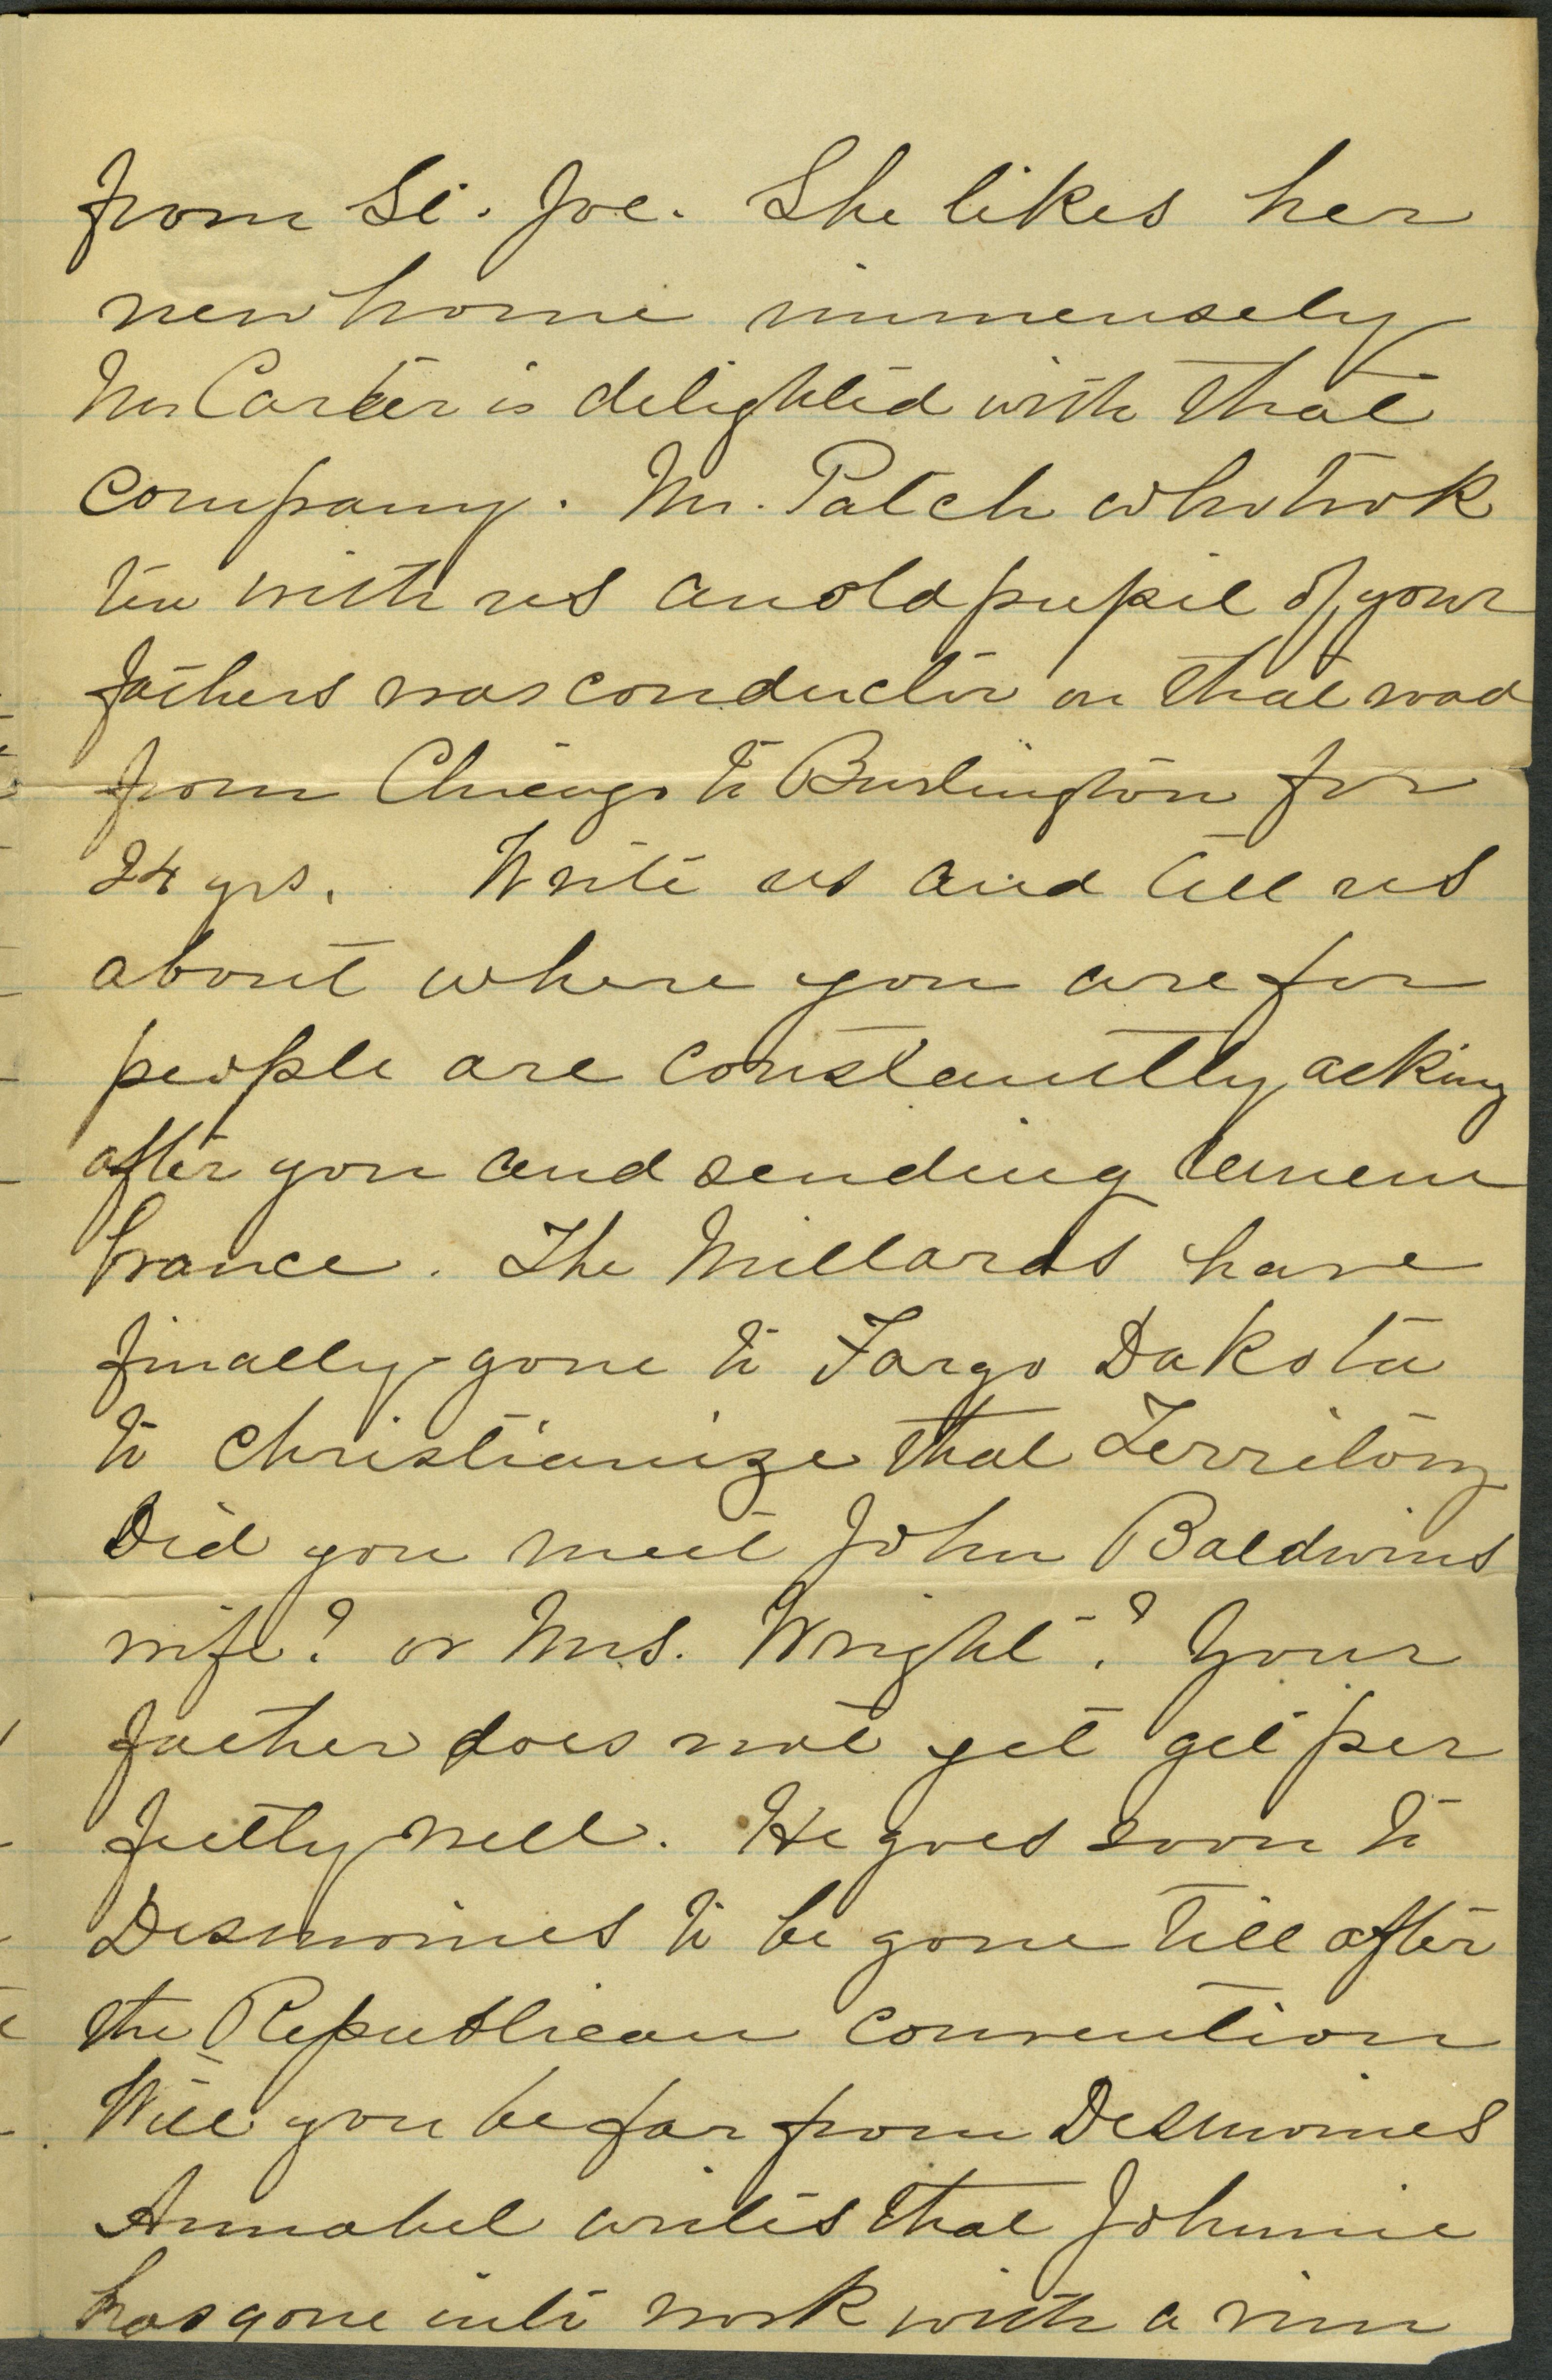 from St. Joe. She likes her
new home immensely
Mr Carter is delighted with that
company. Mr. Patch who took
tea with us an old pupil of your
fathers was conductor on that road
from Chicago to Burlington for
24 yrs. Write us and tell us
about where you are for
people are constantly asking
after you and sending remem
brance. The Millards have
finally gone to Fargo Dakota
to christianize that Territory
Did you meet John Baldwins
wife? or Mrs. Wright? Your
father does not yet get per
fectly well. He goes soon to
Desmoines to be gone till after
the Republican convention
Will you be far from Desmoines
Annabel writes that Johnnie
has gone into work with a vim